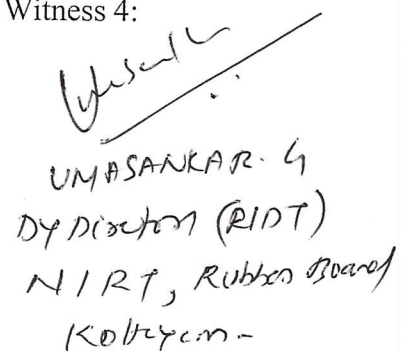 Witness 4:
UMASANKAR. G
Dy Director (RIDT)
NIRT, Rubber Board
Kottayam-